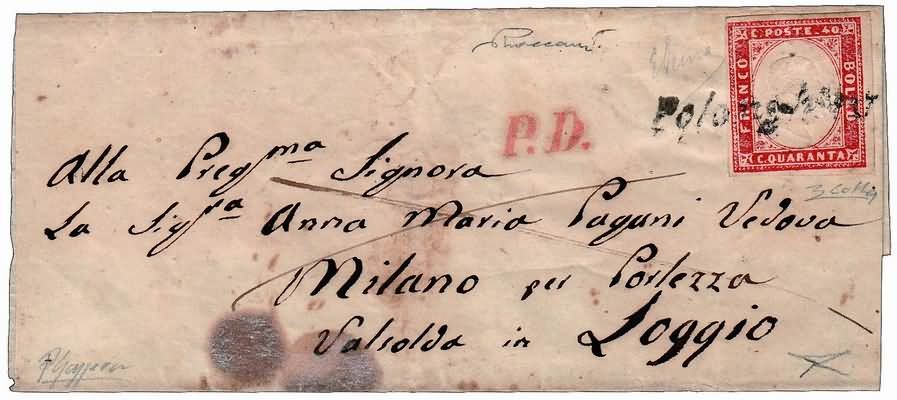 C. POSTE. 40.
FRANCO
BOLLO
C. QUARANTA
P.D.
Alla Pregma Signora
La Sigra Anna Maria Pagani Vedova
Milano per Porlezza
Valsolda in Loggio